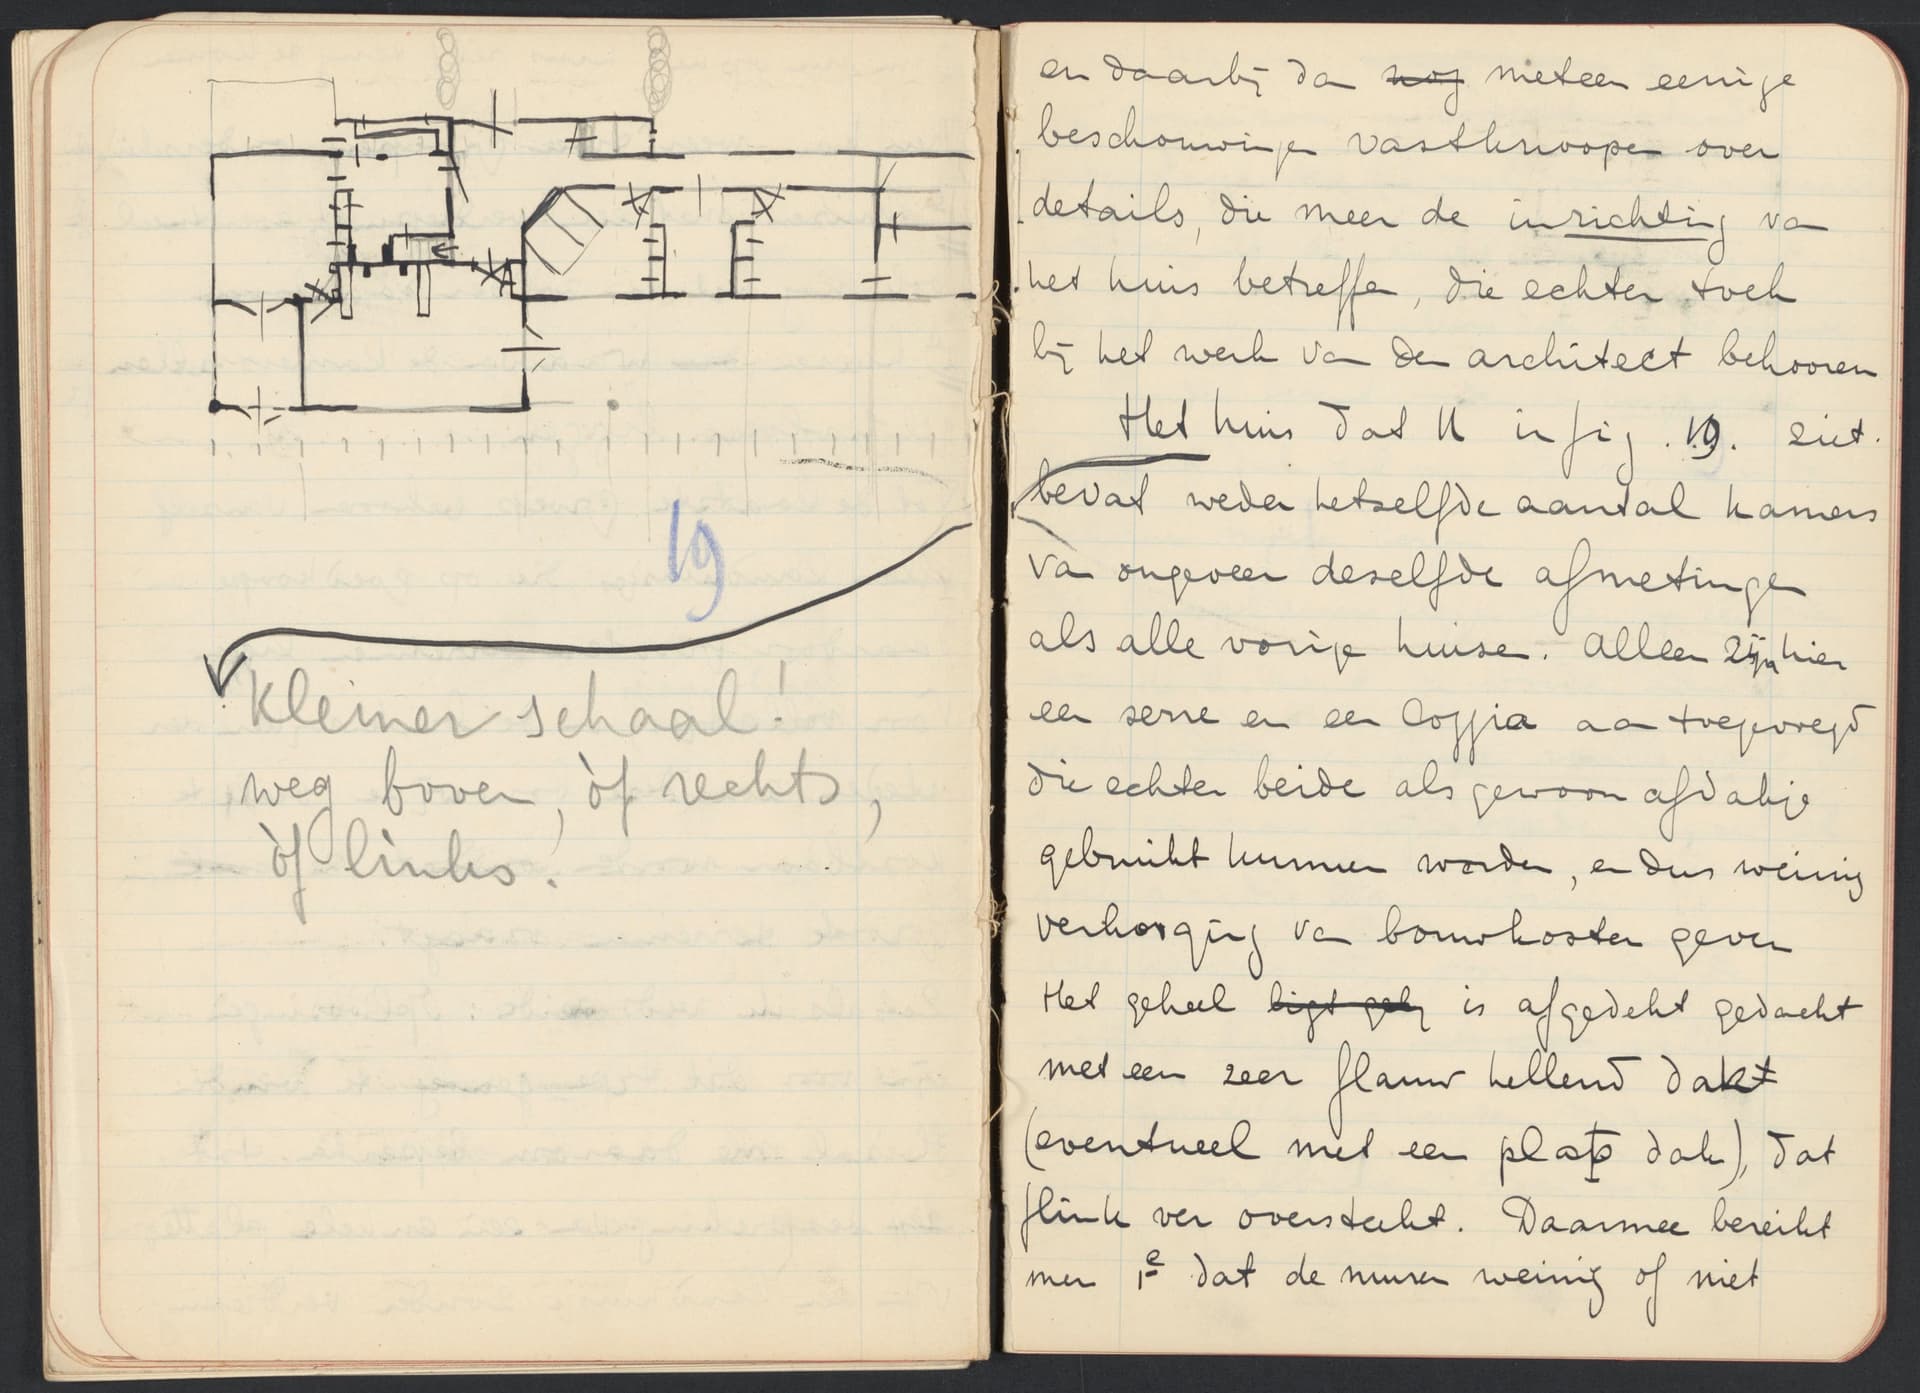 19
Kleiner schaal!
weg boven, òf rechts,
òf links.
en daarbij dan nog meteen eenige
beschouwingen vastknoopen over
details, die meer de inrichting van
het huis betreffen, die echter toch
bij het werk van den architect behooren
Het huis dat U in fig. 19. ziet.
bevat weder hetzelfde aantal kamers
van ongeveer dezelfde afmetingen
als alle vorige huizen. Alleen zijn hier
een serre en een loggia aan toegevoegd
die echter beide als gewoon afdakje
gebruikt kunnen worden, en dus weinig
verhooging van bouwkosten geven
Het geheel ligt is afgedekt gedacht
met een zeer flauw hellend dak
(eventueel met een plat dak), dat
flink ver oversteekt. Daarmee bereikt
men 1e dat de muren weinig of niet